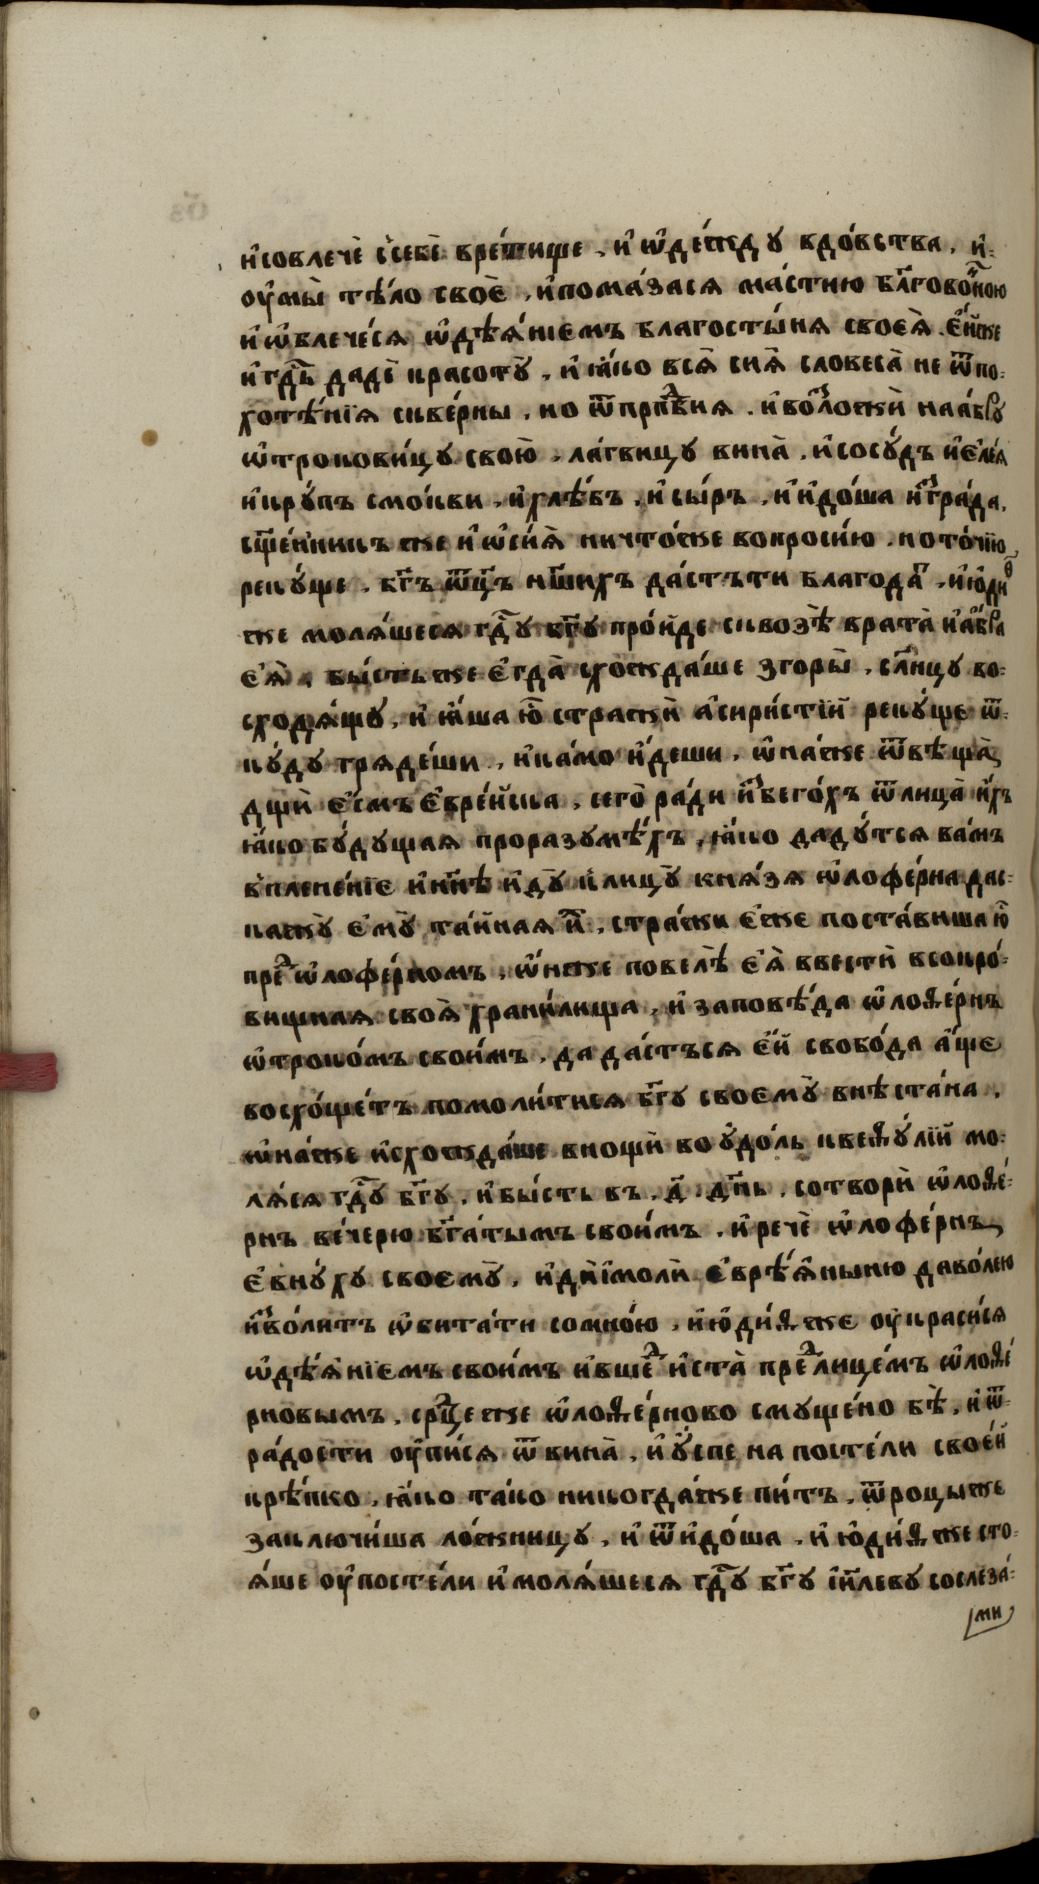 и҆совлечѐ ссебѐ вре́тище, и҆ ѡ҆де́жду вдо́вства, и҆
оу҆мы̀ тѣ́ло своѐ, и҆помаⷥзасѧ ма́стию бл҃гово́нною
и҆ ѡ҆блече́сѧ ѡ҆дѣѧ́ниемъ благосты́нѧ своеѧ̀. є҆́йже
и҆ гдⷭ҇ь дадѐ красотꙋ̀, и҆ ꙗ҆́ко всѧ̀ сиѧ̀ словеса̀ не ѿ по-
хотѣ́нїѧ скве́рны, но ѿ првⷣнїѧ. и҆ возложѝ на а҆́врꙋ
ѡ҆трокови́цꙋ свою̀, ла́гвицꙋ вина̀, и҆ сосꙋ́дъ и҆ є҆ле́ѧ
и҆ крꙋ́пъ смо́кви, и҆ хлѣ́бъ, и҆ сы́ръ, и҆ и҆до́ша и҆з̾ гра́да,
сщ҃е́нникъ же и҆ ѡ҆сі́ѧ ничто́же вопроси́ю. но то́чїю
рекꙋ́ще. бг҃ъ ѿц҃ъ нш҃ихъ да́стъ ти благода́ть, и҆ ю҆ди́ѳ
же молѧ́шесѧ гдⷭ҇ꙋ бг҃ꙋ про́йде сквозѣ̀ врата̀ и҆ а҆́вра
є҆ѧ̀. бы́сть же є҆гда̀ схожда́ше з горы̀, слн҃цꙋ во-
сходѧ́щꙋ, и҆ ꙗ҆́ша ю҆̀ стражѝ а҆сири́стїй рекꙋ́ще ѿ-
кꙋ́дꙋ грѧде́ши, и҆ ка́мо и҆́деши. ѡ҆на́же ѿвѣща̀
дщѝ є҆́смь є҆вре́йска, сего̀ ра́ди и҆збего́хъ ѿ лица̀ и҆́хъ
ꙗ҆́ко бꙋ́дꙋщаѧ проразꙋмѣ́хъ, ꙗ҆́ко дадꙋ́тсѧ ва́мъ
в плене́нїе и҆ нн҃ѣ и҆дꙋ̀ к лицꙋ̀ кнѧ́зѧ ѡ҆лофе́рна да с-
кажꙋ̀ є҆мꙋ̀ та́йнаѧ и҆́х, стра́жи є҆́же поста́виша ю҆̀
преⷣ ѡ҆лофе́рномъ, ѡ҆́нже повелѣ̀ є҆ѧ̀ ввестѝ в сокро́-
вищнаѧ своѧ̀ храни́лища, и҆ заповѣ́да ѡ҆лоѳе́рнъ
ѡ҆троко́мъ свои́мъ, да да́стъсѧ є҆́й свобо́да а҆́ще
восхо́щетъ помоли́тисѧ бг҃ꙋ своемꙋ̀ внѣ ста́на,
ѡ҆на́же и҆схожда́ше в нощѝ во ю҆до́ль квеѳꙋ́лїй мо-
лѧ́сѧ гдⷭ҇ꙋ бг҃ꙋ, и҆ бы́сть въ. д҃. дн҃ь, сотворѝ ѡ҆лоѳе́-
рнъ ве́черю бг҃а́тымъ свои́мъ. и҆ речѐ ѡ҆лофе́рнъ
є҆внꙋ́хꙋ своемꙋ̀, и҆дѝ и҆ молѝ є҆врѣ́ѧныню да во́лею
и҆зво́литъ ѡ҆бита́ти со мно́ю, и҆ ю҆ди́ѳ же оу҆краси́сѧ
ѡ҆дѣѧ́нїемъ свои́мъ и҆ вшеⷣ и҆ ста̀ преⷣ лице́мъ ѡ҆лоѳе́
рновымъ. срⷣце же ѡ҆лоѳе́рново смꙋще́но бѣ̀, и҆ ѿ
ра́дости оу҆пи́сѧ ѿ вина̀, и҆ ᲂу҆́спе на посте́ли свое́й
крѣ́пко, ꙗ҆́ко та́ко никогда́же пи́тъ, ѿроцы же
заключи́ша ло́жницꙋ, и҆ ѿидо́ша. и҆ ю҆ди́ѳ же сто-
ѧ́ше оу҆ посте́ли и҆ молѧ́шесѧ гдⷭ҇ꙋ бг҃ꙋ і҆и҃левꙋ со слеза́-
ми